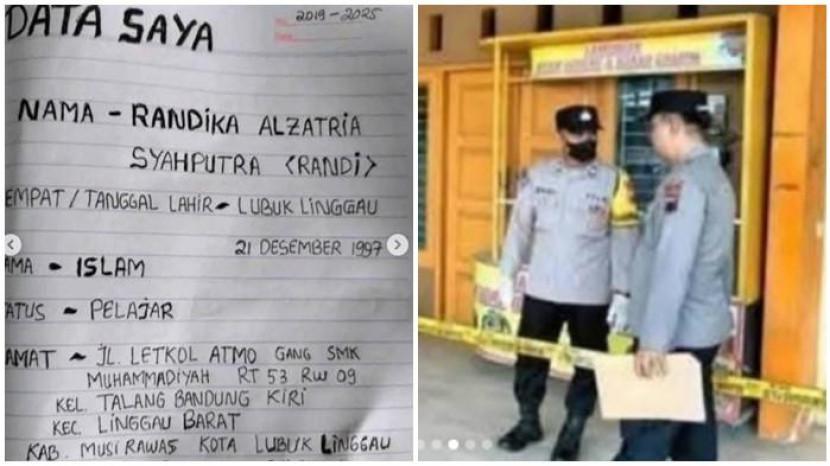 DATA SAYA
2019 - 2025
NAMA - RANDIKA ALZATRIA
SYAHPUTRA <RANDI>
EMPAT / TANGGAL LAHIR - LUBUK LINGGAU
21 DESEMBER 1997
AMA - ISLAM
ATUS - PELAJAR
AMAT - JL. LETKOL ATMO GANG SMK
MUHAMMADIYAH RT 53 RW 09
KEL. TALANG BANDUNG KIRI
KEC. LINGGAU BARAT
KAB. MUSI RAWAS KOTA LUBUK LINGGAU